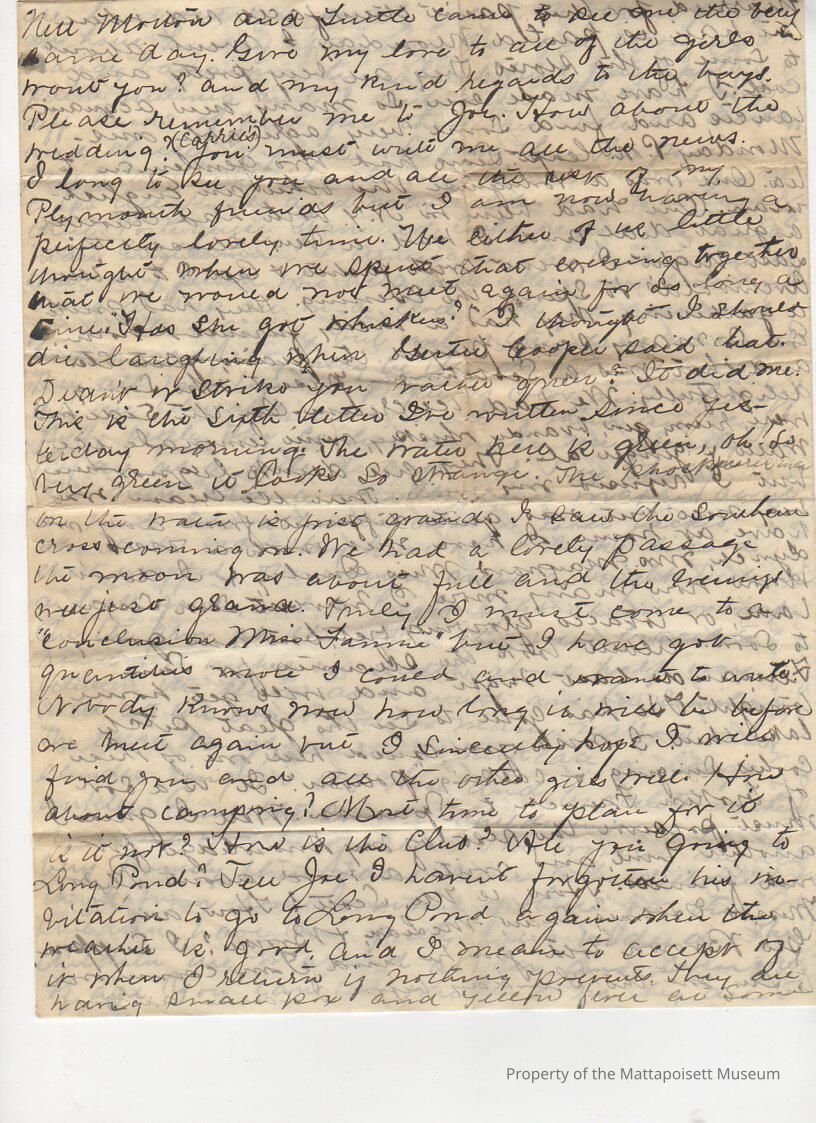 Nell Morton and Gertie came to see me the very
same day. Give my love to all of the girls
wont you? and my kind regards to the boys.
Please remember me to Joe. How about the
wedding? (Carrie's) You must write me all the news.
I long to see you and all the rest of my
Plymouth friends but I am now having a
perfectly lovely time. We either of us little
thought when we spent that evening together
that we would not meet again for so long a
time. "Has she got whiskers?" I thought I should
die laughing when Gertie Cooper said that.
Didn't it strike you rather queer? It did me.
This is the sixth letter I've written since yes-
terday morning. The water here is green, oh so
very green it looks so strange. The
on the water is just grand. I saw the Southern
cross coming on. We had a lovely passage
the moon was about full and the evenings
were just grand. Truly I must come to a
"conclusion Miss Fannie" but I have got
quantities more I could and want to write.
Nobody knows now how long it will be before
we meet again but I sincerely hope I will
find you and all the other girls well. How
about camping? Most time to plan for it
is it not? How is the Club? Are you going to
Long Pond? Tell Joe I haven't forgotten his in-
vitation to go to Long Pond again when the
weather is good and I mean to accept of
it when I return if nothing prevents. They are
having small pox and yellow fever at some
Property of the Mattapoisett Museum